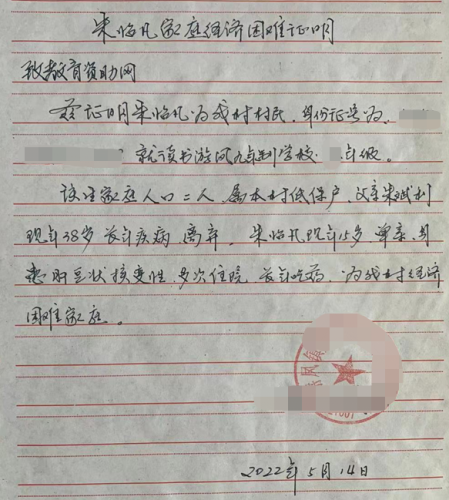 朱临凡家庭经济困难证明
致教育资助网
兹证明朱临凡为我村村民,身份证号为
就读书游凤九年制学校 年级。
该生家庭人口二人,属本村低保户,父亲朱斌
现年38岁 长年疾病,离弃,朱临凡现年15岁,单亲,
患肝豆状核变性,多次住院,长年吃药,为我村经济
困难家庭。
凤镇
2022年5月14日